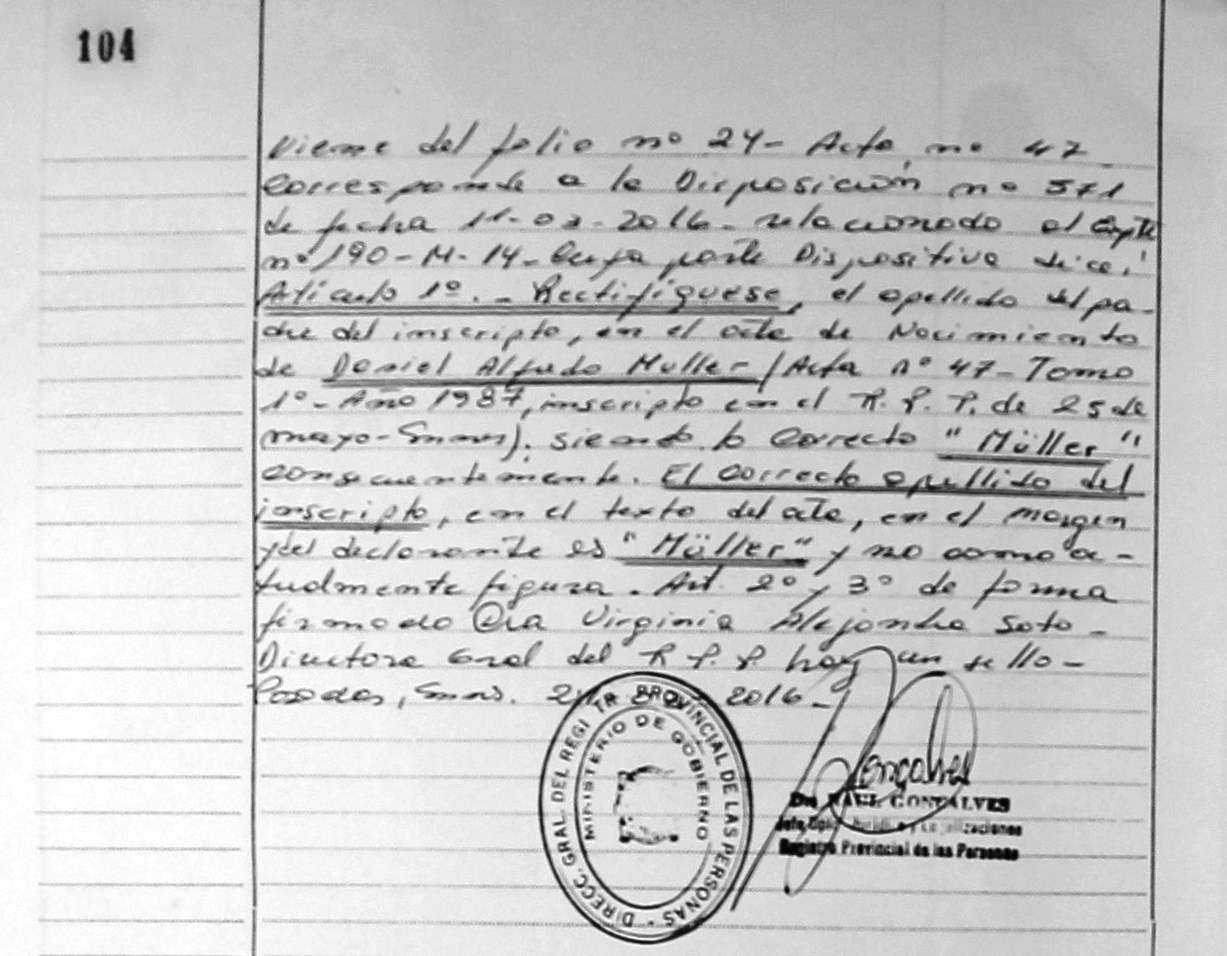 104
Viene del folio nº 24- Acta nº 47
Corresponde a la Disposición nº 571
de fecha 11-03-2016- relacionado al Expte
nº 190-M-14- Cuya parte Dispositiva dice:
Artículo 1º.- Rectifíquese, el apellido del pa-
dre del inscripto, en el acta de Nacimiento
de Daniel Alfredo Muller (Acta nº 47- Tomo
1º- Año 1987, inscripto en el R. P. P. de 25 de
mayo-Smnes). siendo lo Correcto "Müller"
consecuentemente. El correcto apellido del
inscripto, en el texto del acta, en el margen
y del declarante es "Müller" y no como ac-
tualmente figura. Art. 2º y 3º de forma
firmado Dra Virginia Alejandra Soto-
Directora Gral del R. P. P. hay un sello-
Posadas, Smnes. 2016-
DIRECC. GRAL. DEL REGI TR PROVINCIAL DE LAS PERSONAS -
MINISTERIO DE GOBIERNO
Gonçalves
Dr. RAUL GONCALVES
Jefe y Legalizaciones
Registro Provincial de las Personas